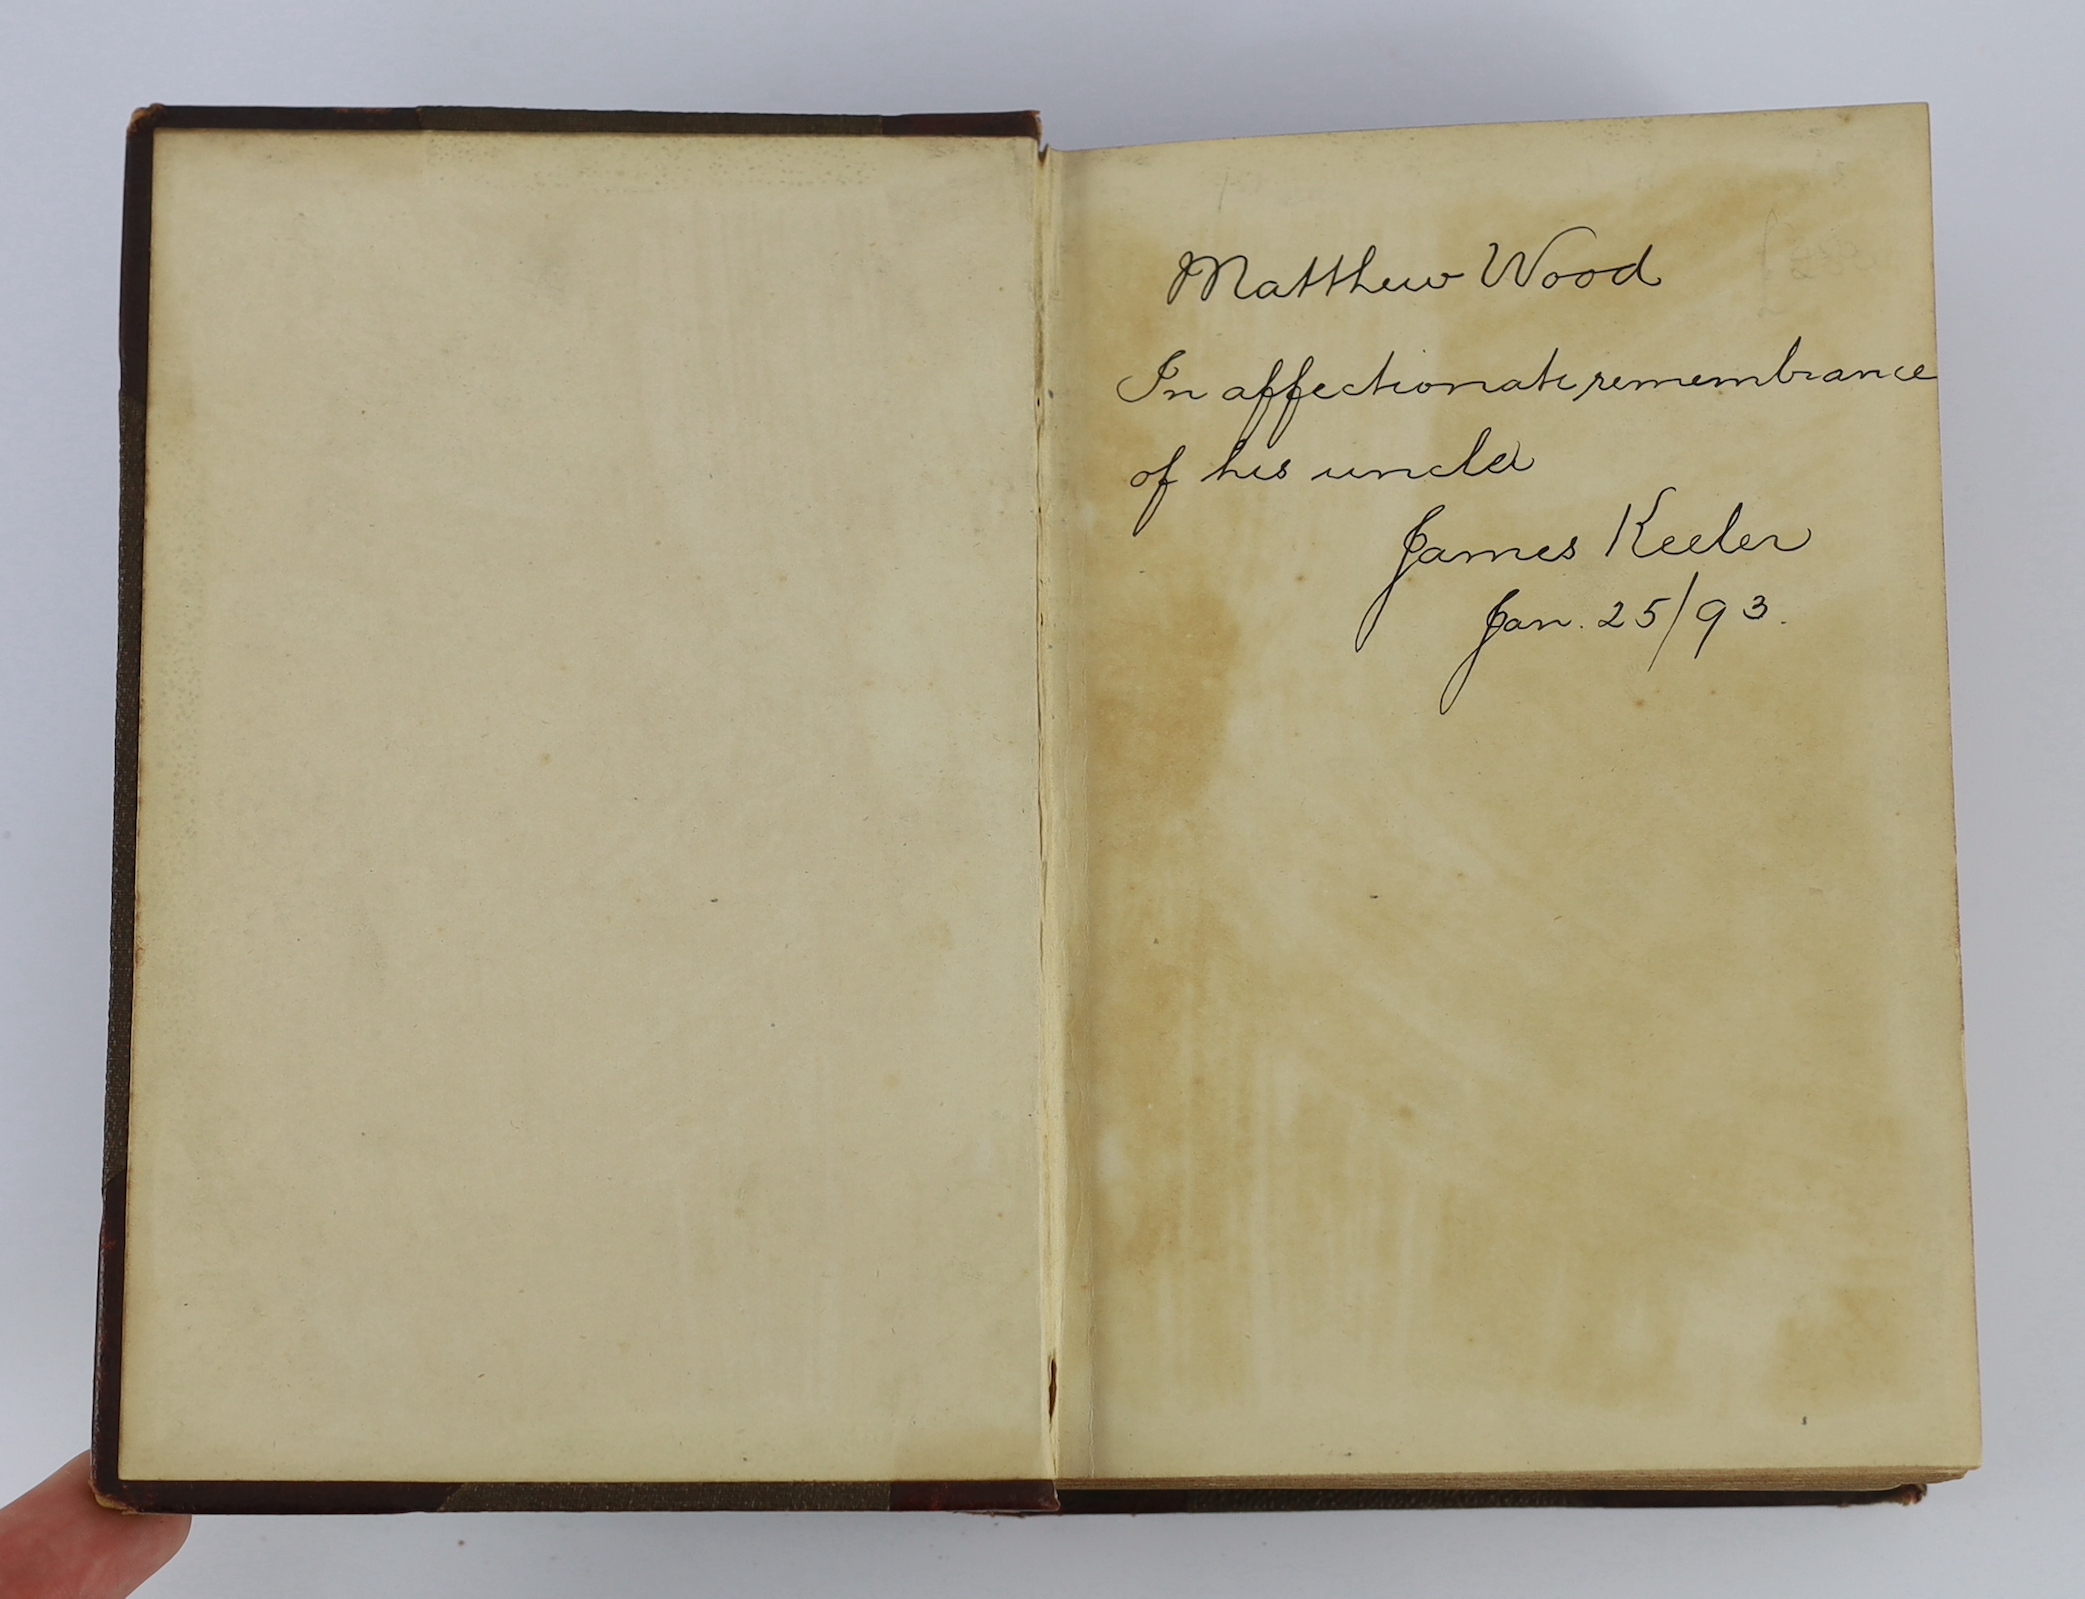 Matthew Wood
In affectionate remembrance
of his uncle
James Keeler
Jan. 25/93.